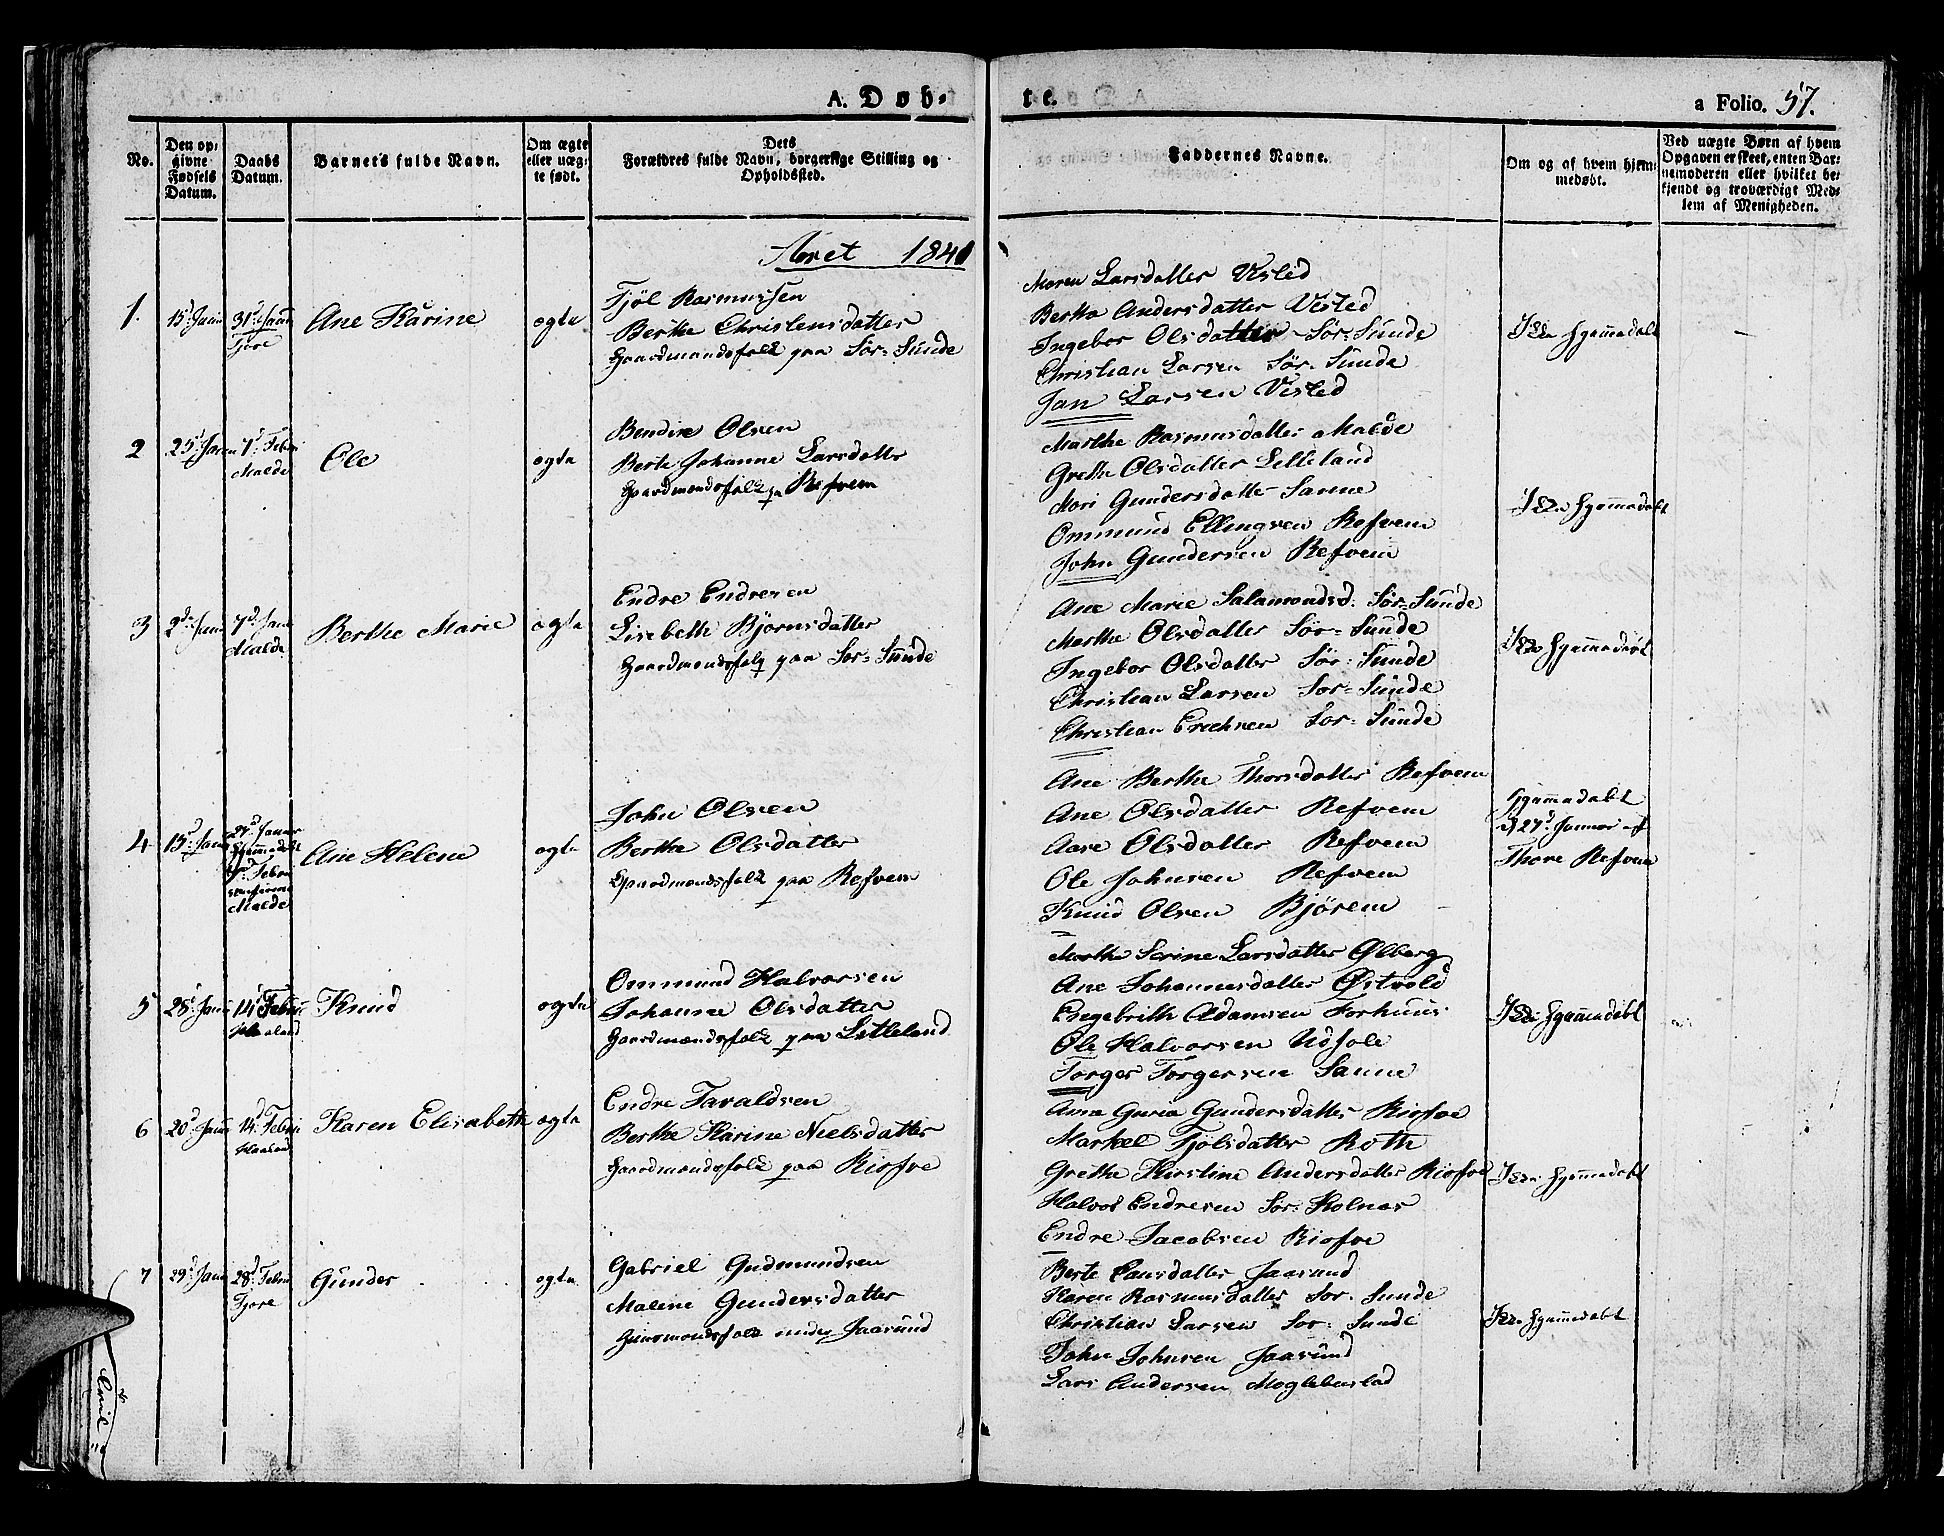 A. Døb-
te.
a Folio. 57.
No.
Den op-
givne
Fødsels
Datum.
Daabs
Datum.
Barnets fulde Navn.
Om ægte
eller uæg-
te født.
Dets
Forældres fulde Navn, borgerlige Stilling og
Opholdssted.
Faddernes Navne.
Om og af hvem hjem-
medøbt.
Ved uægte Børn af hvem
Opgaven er skeet, enten Bar-
nemoderen eller hvilket be-
kjendt og troværdigt Med-
lem af Menigheden.
Aaret 1841
1.
15d Janu
31d Janu
Tjore
Ane Karine
ægte
Tjöl Rasmussen
Berthe Christensdatter
Gaardmandsfolk paa Sör-Sunde
Maren Larsdatter Visted
Bertha Andersdatter Visted
Ingebor Olsdatter Sör-Sunde
Christian Larsen Sör-Sunde
Jan Larsen Visted
Ikke hjemmedøbt
2
25d Janu
7d Febru
Malde
Ole
ægte
Bendix Olsen
Berte Johanne Larsdatter
Gaardmandsfolk pa Refvem
Marthe Rasmusdatter Malde
Grethe Olsdatter Lilleland
Mari Gundersdatter Sanne
Ommund Ellingsen Refvem
John Gundersen Refvem
Ikke hjemmedøbt
3
2d Janu
7d Janu
Malde
Berthe Marie
ægte
Endre Endresen
Lisebeth Bjørnsdatter
Gaardmandsfolk paa Sör-Sunde
Ane Marie Salamonsd: Sör-Sunde
Marthe Olsdatter Sör-Sunde
Ingebor Olsdatter Sör-Sunde
Christian Larsen Sör-Sunde
Christian Erichsen Sör-Sunde
Ikke hjemmedøbt
4
15d Janu
27d Januar
hjemmedøbt
Febru
Malde
Ane Helene
ægte
John Olsen
Berthe Olsdatter
Gaardmandsfolk paa Refvem
Ane Berthe Thorsdatter Refvem
Ane Olsdatter Refvem
Aare Olsdatter Refvem
Ole Johnsen Refvem
Knud Olsen Bjørem
hjemmedøbt
d 27d Januar af
Thore Refvem
5
28d Janu
14d Febru
Haaland
Knud
ægte
Ommund Halvorsen
Johanne Olsdatter
Gaardmandsfolk paa Litleland
Marthe Serine Larsdatter Ølberg
Ane Johannesdatter Østvold
Engebrith Adamsen Forhuus
Ole Halvorsen Udsole
Torger Torgersen Sanne
Ikke hjemmedøbt
6
20d Janu
14d Febru
Haaland
Karen Elisabeth
ægte
Endre Taraldsen
Berthe Karine Nielsdatter
Gaardmandsfolk paa Riofve
Ana Guria Gundersdatter Riofve
Markel Tjölsdatter Roth
Grethe Kirstine Andersdatter Riofve
Halvor Endresen Sör-Kolnes
Endre Jacobsen Riofve
Ikke hjemmedøbt
7
29d Janu
28d Febru
Tjore
Gunder
ægte
Gabriel Gudmundsen
Malene Gundersdatter
Huusmandsfolk under Jaasund
Berte Larsdatter Jaasund
Karen Rasmusdatter Sör-Sunde
Christian Larsen Sör-Sunde
John Johnsen Jaasund
Lars Andersen Meglebustad
Ikke hjemmedøbt